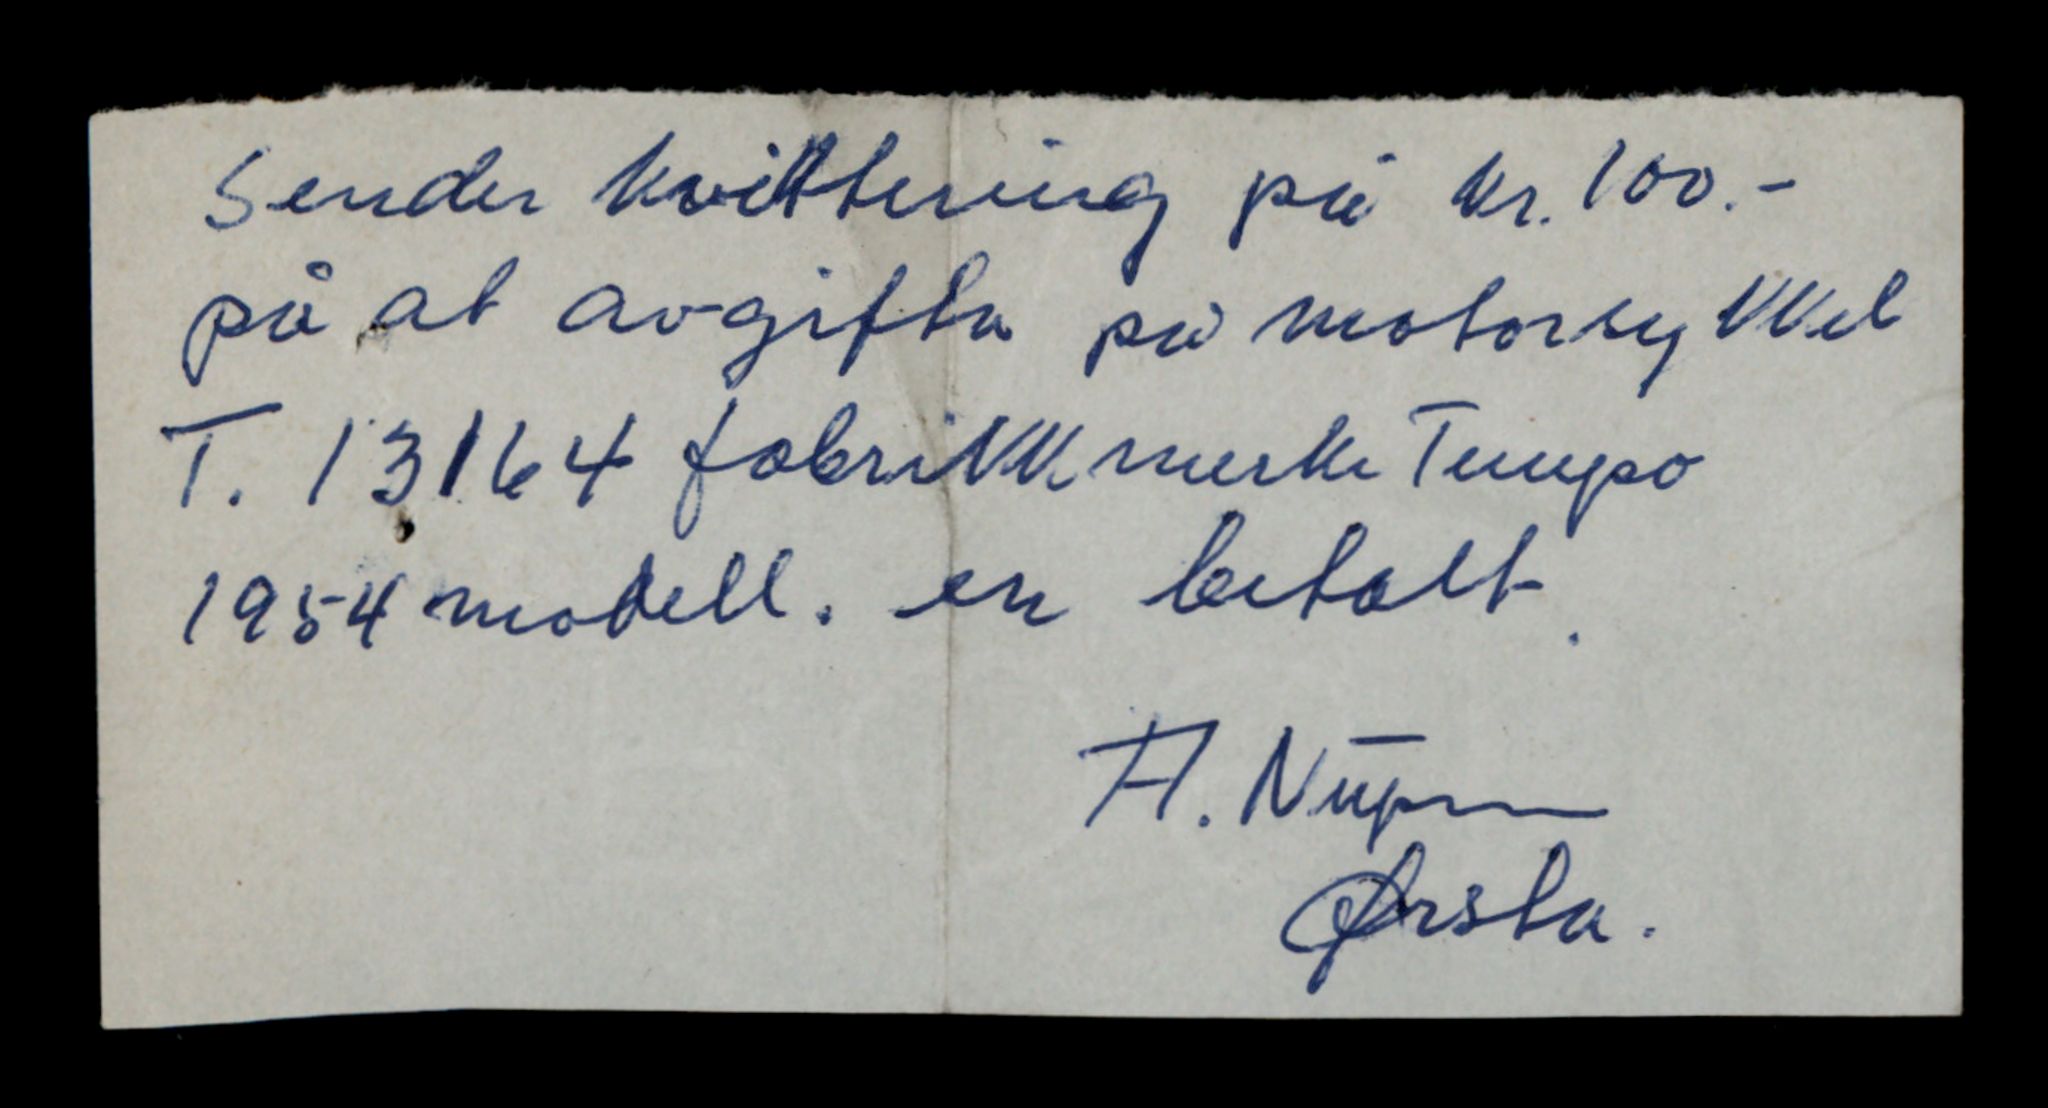 Sender kvittering på kr. 100.-
på at avgifta på motorsykkel
T. 13164 fabrikkmerke Tempo
1954 modell. er betalt.
A.
Ørsta.